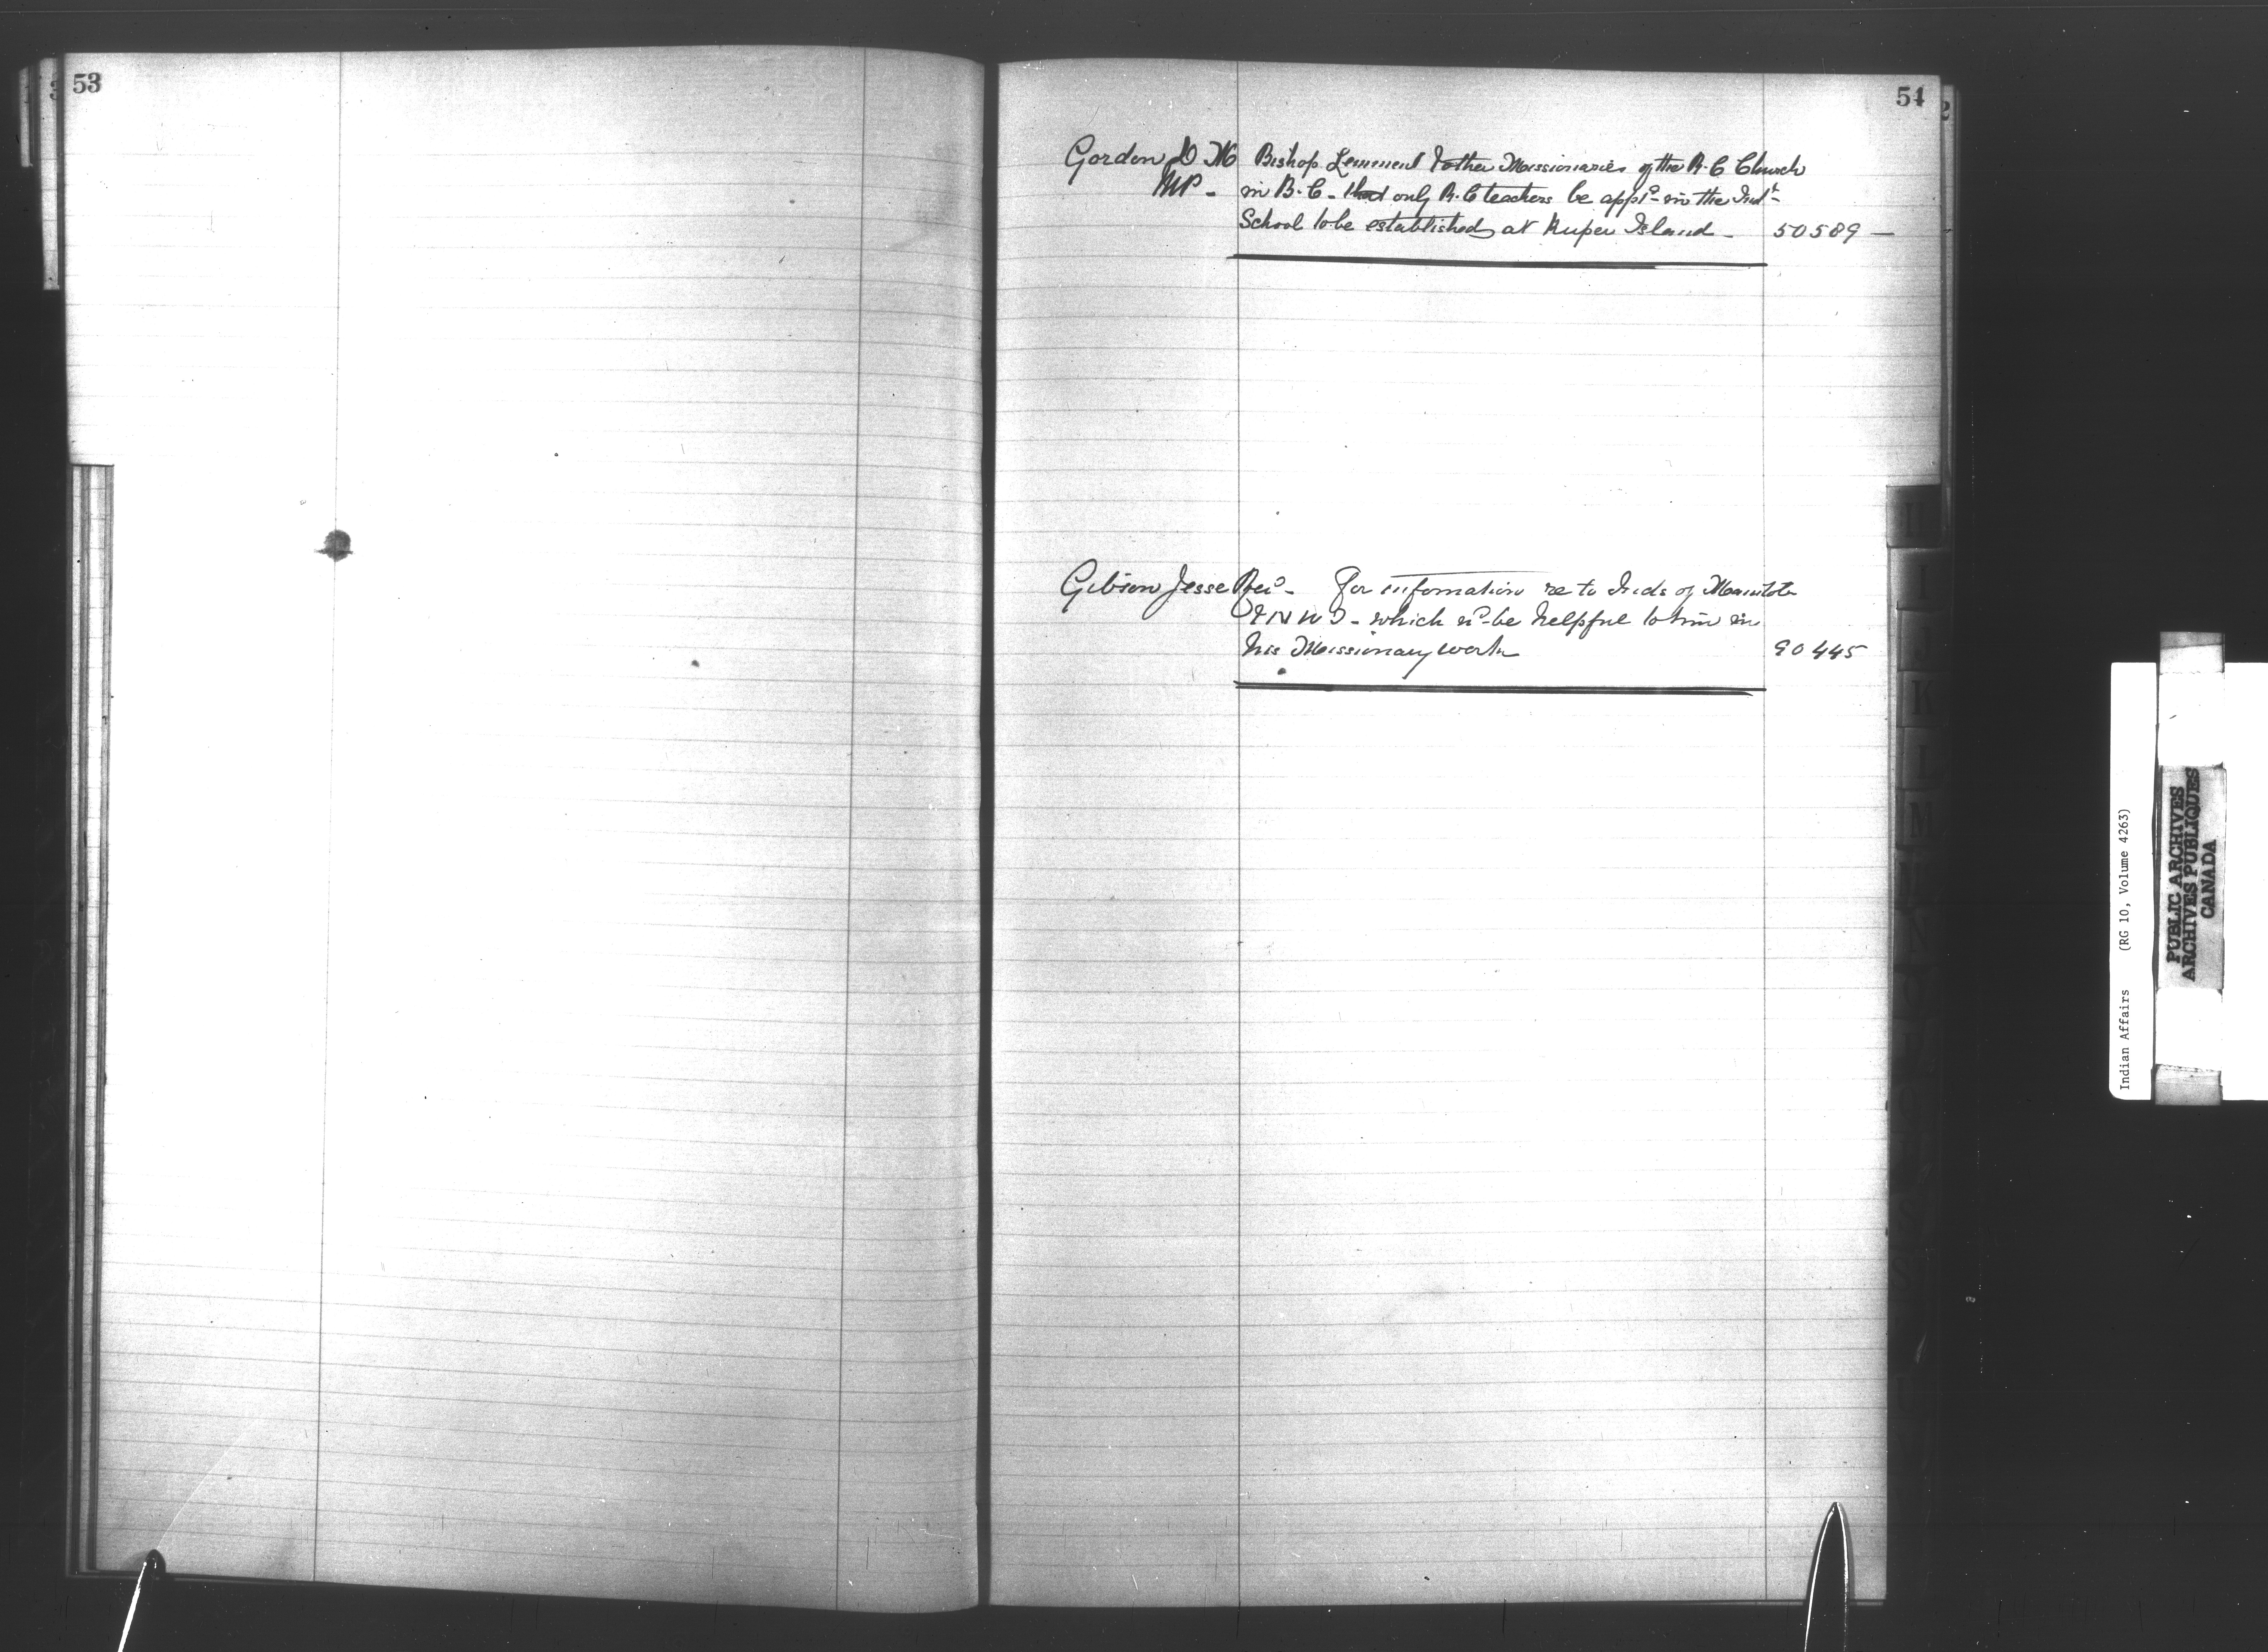 53
54
Gordon D W Bishop Lemmens & other Missionaries of the R.C Church
MP - in B.C - that only R.C teachers be app^td in the Ind^l
School to be established at Kuper Island - 50589 -
Gibson Jesse Rev^d - For information re to Inds of Manitoba
& N W T - which w^d be helpful to him in
his Missionary work 90445
I
J
K
L
M
Indian Affairs (RG 10, Volume 4263)
PUBLIC ARCHIVES
ARCHIVES PUBLIQUES
CANADA